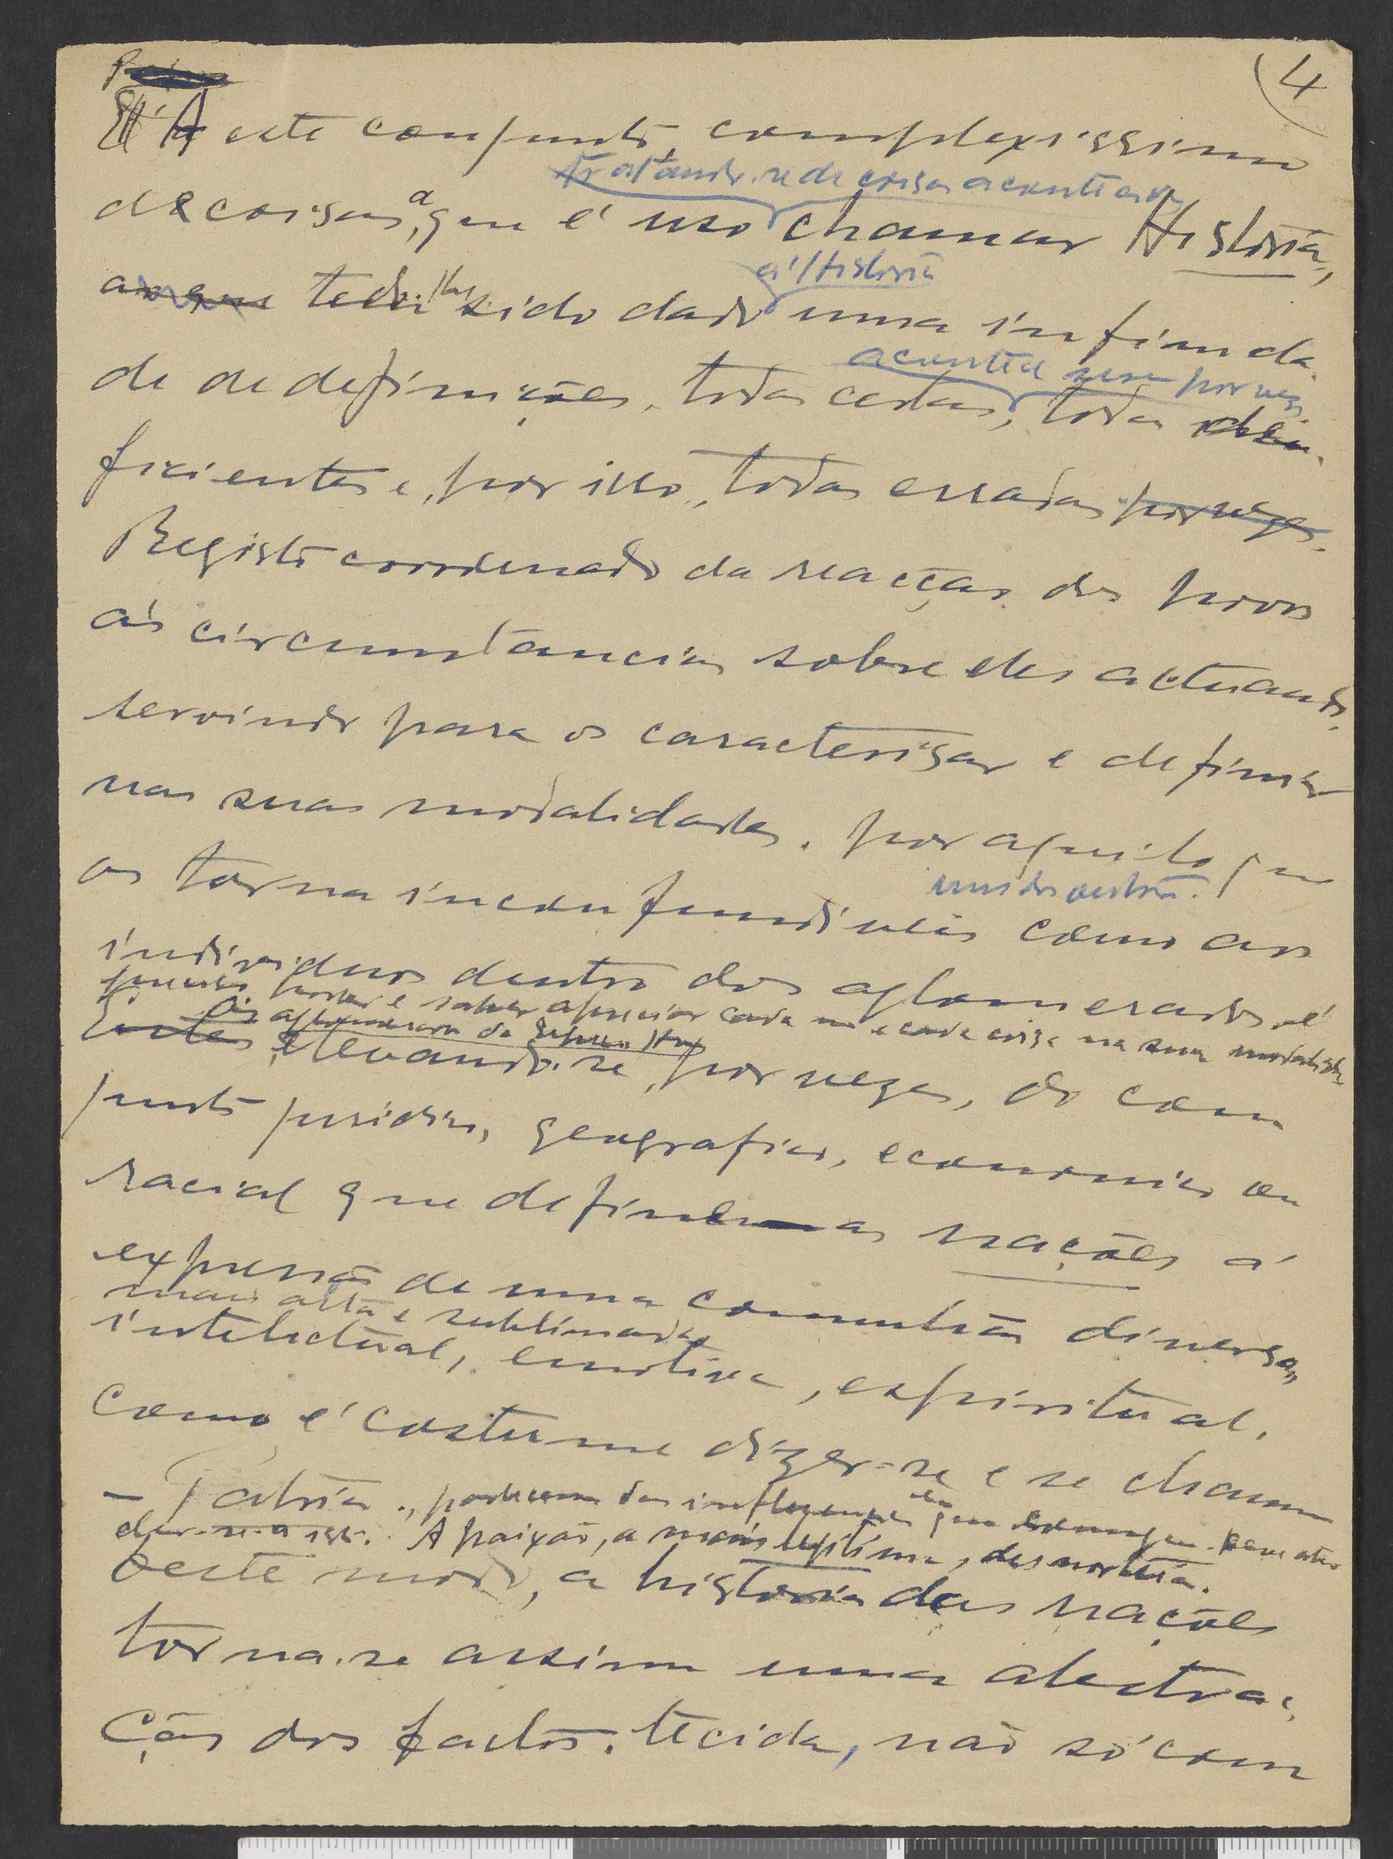 (4
É A este conjunto, complexissimo
tratando-se de coisas acontecidas
de coisas, a que é uso chamar Historia,
á Historia
ao que tem-lhe sido dado uma infinda-
acontece mesmo por vezes
de de definições, todas certas, todas defi-
ficientes e, por isso, todas erradas por vezes.
Registo coordenado da reacção dos povos
ás circumstancias sobre eles actuando,
servindo para os caracterisar e definir
nas suas modalidades, por aquilo que
uns dos outros.
os torna inconfundiveis como aos
individuos dentro dos aglomerados, é
preciso pesar e saber apreciar cada um e cada coisa na sua modalidade
Entes, elevando-se, por vezes, do con-
junto juridico, geografico, economico ou
racial que define as nações á
expressão de uma comunhão diversa,
mais alta e sublimada,
intelectual, emotiva, espiritual,
como é costume dizer-se e se chama
– Patria.
der-se a isso. A paixão, a mais legitima, desnorteia.
Deste modo, a historia das nações
torna-se assim uma abstra-
ção dos factos, tecida, não só com